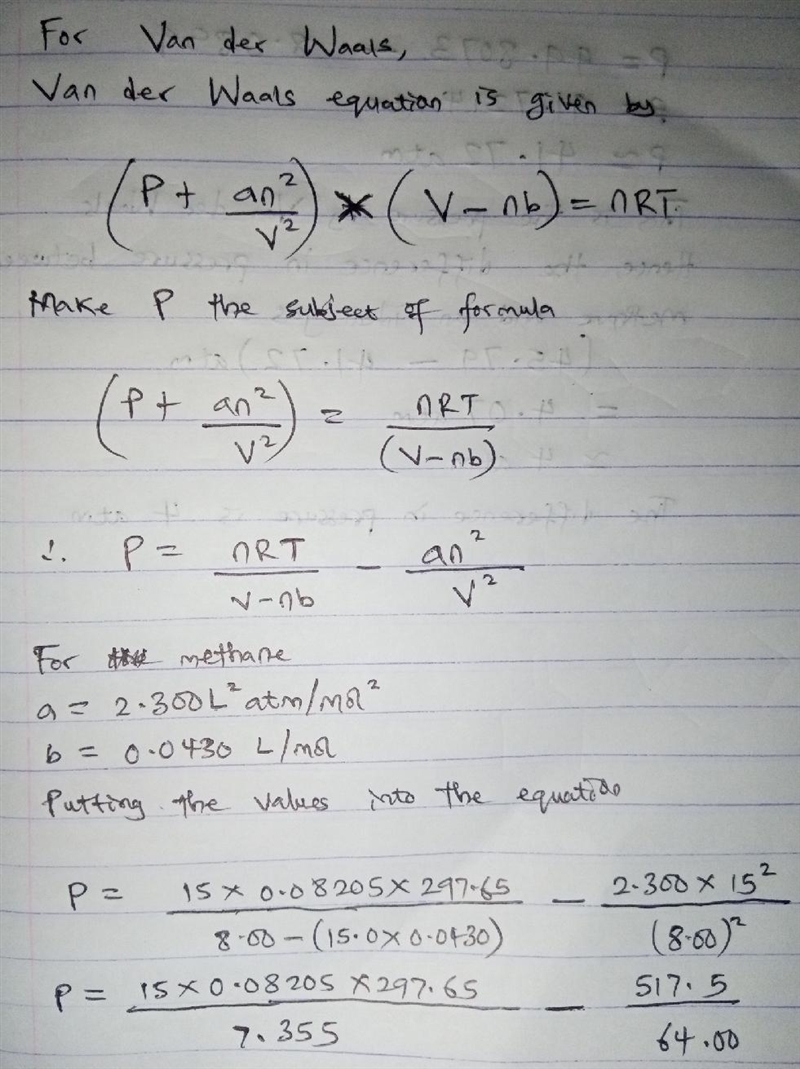 For Van der Waals,
Van der Waals equation is given by.
(P + an²/V²) × (V - nb) = nRT.
Make P the subject of formula
(P + an²/V²) = nRT/(V-nb)
∴ P = nRT/V-nb - an²/V²
For methane
a = 2.300L² atm/mol²
b = 0.0430 L/mol
Putting the values into the equation
P = 15 × 0.08205 × 297.65/8.00 - (15.0 × 0.0430) - 2.300 × 15²/(8.00)²
P = 15 × 0.08205 × 297.65/7.355 - 517.5/64.00